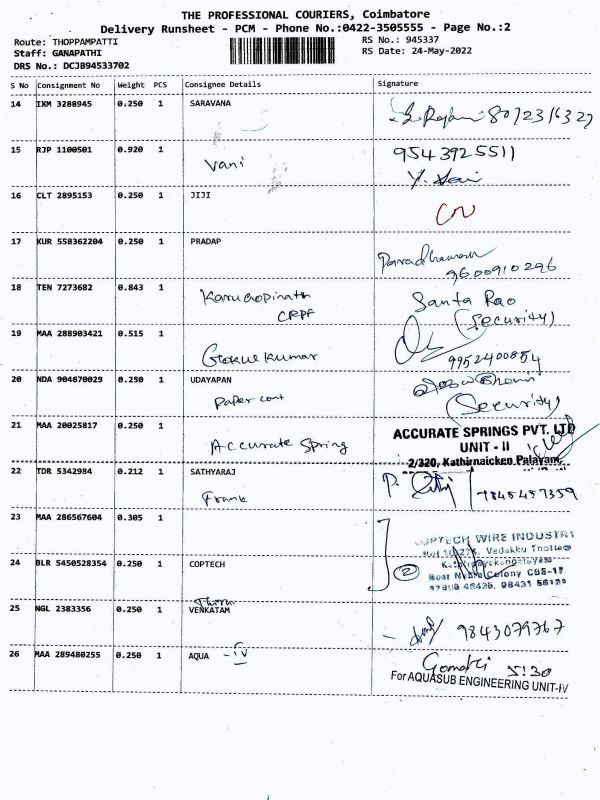 THE PROFESSIONAL COURIERS, Coimbatore
Delivery Runsheet - PCM - Phone No.:0422-3505555 - Page No.:2
Route: THOPPAMPATTI RS No.: 945337
Staff: GANAPATHI RS Date: 24-May-2022
DRS No.: DCJB94533702
S No Consignment No Weight PCS Consignee Details Signature
14 IXM 3288945 0.250 1 SARAVANA
15 RJP 1100501 0.920 1 9543925511
Vani
16 CLT 2895153 0.250 1 JIJI
17 KUR 558362204 0.250 1 PRADAP
9600910296
18 TEN 7273682 0.843 1 Santa Rao
CRPF (Security)
19 MAA 288903421 0.515 1
Gokul Kumar 9952400854
20 NDA 904670029 0.250 1 UDAYAPAN
Paper cont (Security)
21 MAA 20025817 0.250 1 ACCURATE SPRINGS PVT. LTD
Accurate Spring UNIT - II
2/320, Kathirnaicken Palayam
22 TDR 5342984 0.212 1 SATHYARAJ
Frank 7845457359
23 MAA 286567604 0.305 1
COPTECH WIRE INDUSTRY
24 BLR 5450528354 0.250 1 COPTECH 2
25 NGL 2383356 0.250 1 VENKATAM 9843079767
26 MAA 289480255 0.250 1 AQUA - IV Gomathi 5:30
For AQUASUB ENGINEERING UNIT-IV